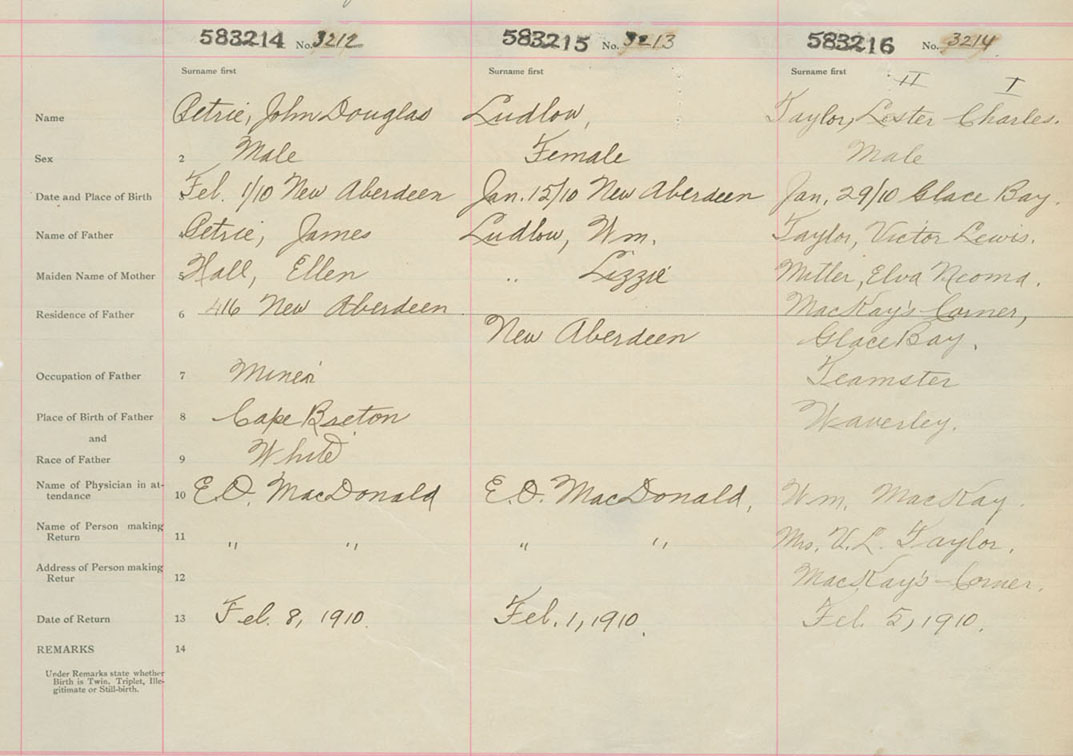 583214 No. 3212 583215 No. 3213 583216 No. 3214
Surname first Surname first Surname first II I
Name Petrie, John Douglas Ludlow, Taylor, Lester Charles.
Sex 2 Male Female Male
Date and Place of Birth 3 Feb. 1/10 New Aberdeen Jan. 15/10 New Aberdeen Jan, 29/10 Glace Bay.
Name of Father 4 Petrie, James Ludlow, Wm. Taylor, Victor Lewis.
Maiden Name of Mother 5 Hall, Ellen " Lizzie Miller, Elva Neoma.
Residence of Father 6 416 New Aberdeen New Aberdeen MacKay's-Corner,
Glace Bay.
Occupation of Father 7 Miner Teamster
Place of Birth of Father 8 Cape Breton Waverley.
and
Race of Father 9 White
Name of Physician in at-
tendance 10 E.O. MacDonald E.O. MacDonald, Wm. MacKay.
Name of Person making
Return 11 " " " " Mrs. V.L. Taylor.
Address of Person making
Retur 12 MacKay's-Corner.
Date of Return 13 Feb. 8, 1910. Feb. 1, 1910. Feb. 5, 1910.
REMARKS 14
Under Remarks state whether
Birth is Twin, Triplet, Ille-
gitimate or Still-birth.